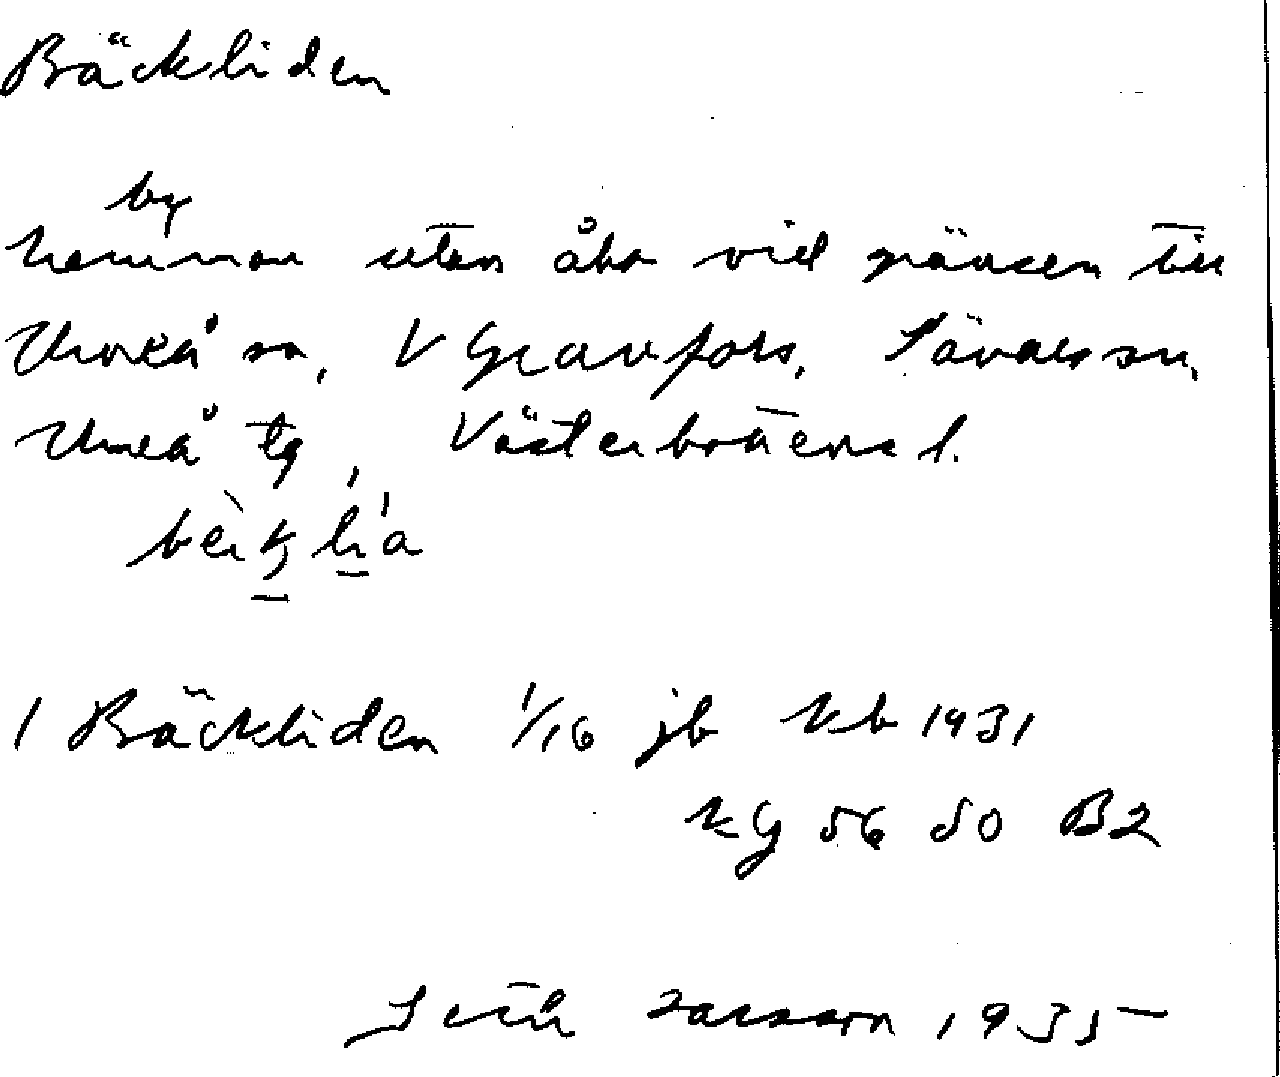 Bäckliden
by
hemman utan åbo vid gränsen till
Umeå sn, V Granfors, Sävars sn,
Umeå tg, Västerbottens l.
1 Bäckliden 1/16 jb kb 1931
kg 56 50 B2
Larsson 1935